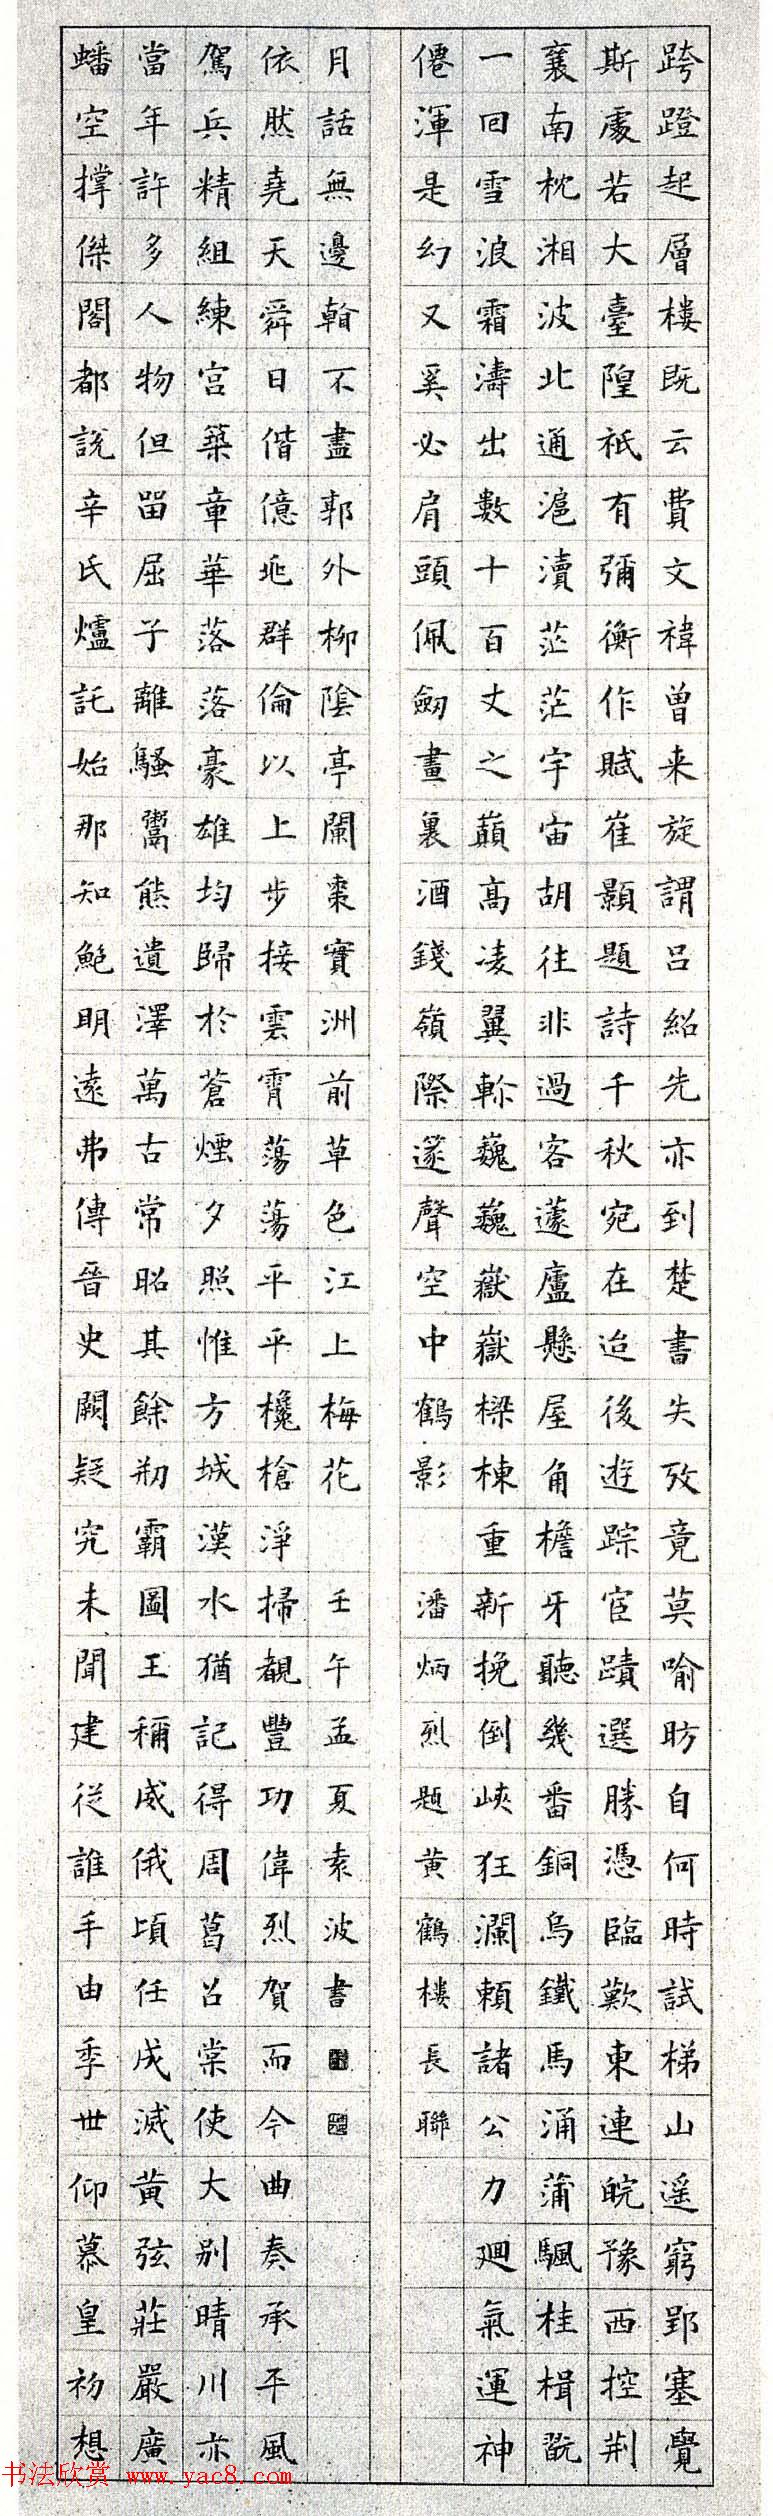 跨蹬起層樓既云費文褘曾来旋謂呂紹先亦到楚書失攷竟莫喻昉自何時試梯山遥窮郢塞覺
斯處若大臺隍祇有彌衡作賦崔顥題詩千秋宛在迨後遊踪宦蹟選勝憑臨歎東連皖豫西控荆
襄南枕湘波北通滬瀆茫茫宇宙胡往非過客蘧廬懸屋角檐牙聽幾番銅烏鐵馬涌蒲颿桂楫翫
一回雪浪霜濤出數十百丈之巔高凌翼軫巍巍嶽嶽樑棟重新挽倒峽狂瀾賴諸公力廻氣運神
僊渾是幻又奚必肩頭佩劒畫裏酒錢嶺際篴聲空中鶴影 潘炳烈题黄鶴樓長聯
蟠空撑傑閣都說辛氏爐託始那知鮑明遠弗傳晉史闕疑究未聞建從誰手由季世仰慕皇初想
當年許多人物但留屈子離騷鬻熊遺澤萬古常昭其餘剏霸圖王稱威俄頃任成滅黄弦莊嚴廣
駕兵精組練宮築章華落落豪雄均歸於蒼煙夕照惟方城漢水猶記得周葛召棠使大别晴川亦
依然堯天舜日偕億兆群倫以上步接雲霄蕩蕩平平欃槍淨掃覩豐功偉烈賀而今曲奏承平風
月話無邊翰不盡郭外柳陰亭闌棗實洲前草色江上梅花 壬午孟夏素波書
书法欣赏 www.yac8.com